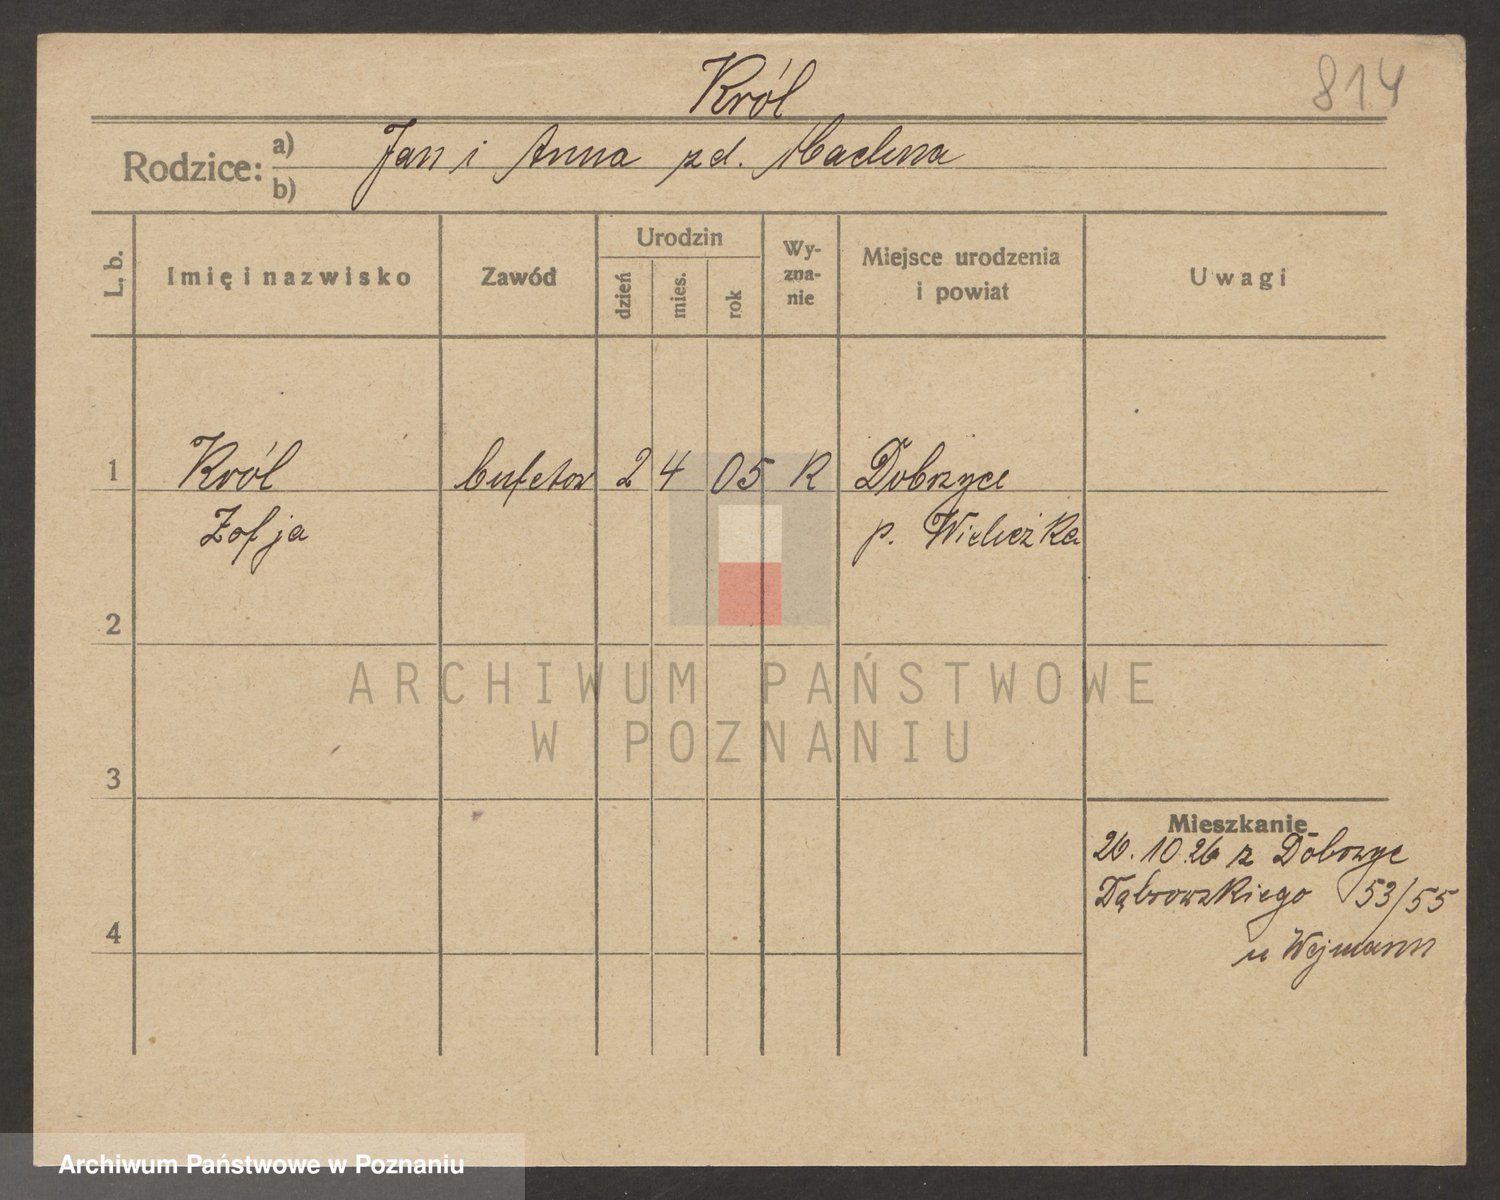 Król
814
Rodzice: a) b)
Jan i Anna zd.
L. b.
Imię i nazwisko
Zawód
Urodzin
dzień
mies.
rok
Wy-
zna-
nie
Miejsce urodzenia
i powiat
Uwagi
1 Król bufetow 2 4 05 R Dobrzyce
Zofja p. Wieliczka
2
3
4
Mieszkanie
20.10.26 z Dobrzyc
Dąbrowskiego 53/55
u Wejmann
ARCHIWUM PAŃSTWOWE
W POZNANIU
Archiwum Państwowe w Poznaniu